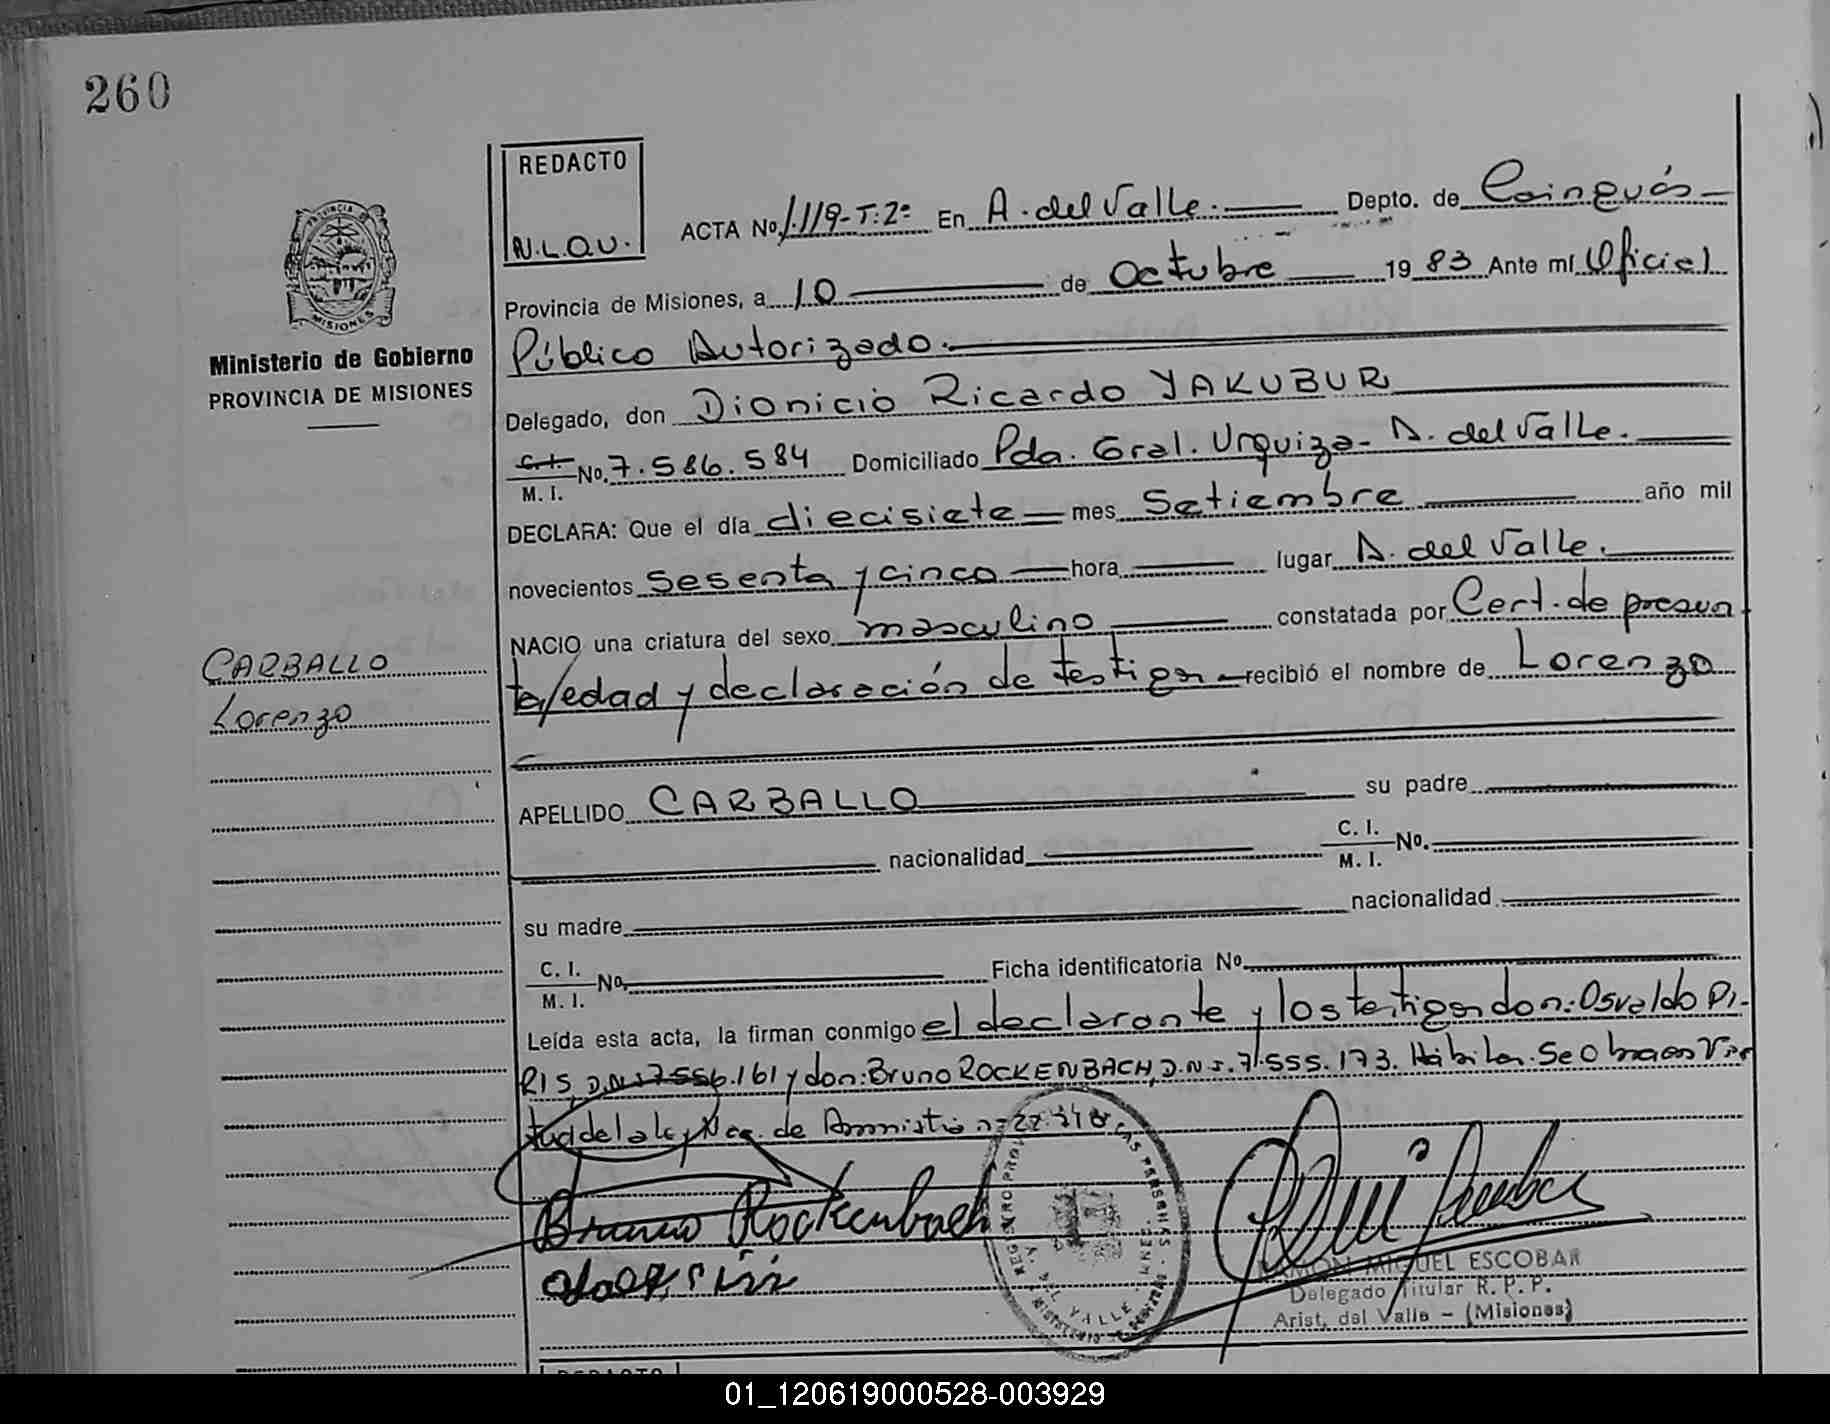 260
REDACTO
N.L.O.V.
ACTA No. 1.119-T:2º En A. del Valle. Depto. de Cainguás
Provincia de Misiones, a 10 de Octubre 19 83 Ante mí Oficial
Público Autorizado.
PROVINCIA
MISIONES
Ministerio de Gobierno
PROVINCIA DE MISIONES
Delegado, don Dionicio Ricardo YAKUBUR
C.I. M. I. No. 7.586.584 Domiciliado Pda. Gral. Urquiza- A. del Valle.
DECLARA: Que el día diecisiete mes Setiembre año mil
novecientos sesenta y cinco hora lugar A. del Valle.
NACIO una criatura del sexo masculino constatada por Cert. de presun
ta/edad y declaración de testigos recibió el nombre de Lorenzo
CARBALLO
Lorenzo
APELLIDO CARBALLO su padre
nacionalidad C. I. M. I. No.
su madre nacionalidad
C. I. M. I. No. Ficha identificatoria No.
Leída esta acta, la firman conmigo el declarante y los testigos don: Osvaldo PI-
RIS, D.N.I. 7.556.161 y don: Bruno ROCKENBACH, D.N.I. 7.555.173. Hábiles. Se Obra en Vir
tud de la ley Nac. de Amnistía
Bruno Rockenbach
RAMON MIGUEL ESCOBAR
Delegado Titular R. P. P.
Arist. del Valle - (Misiones)
REDACTO
01_120619000528-003929